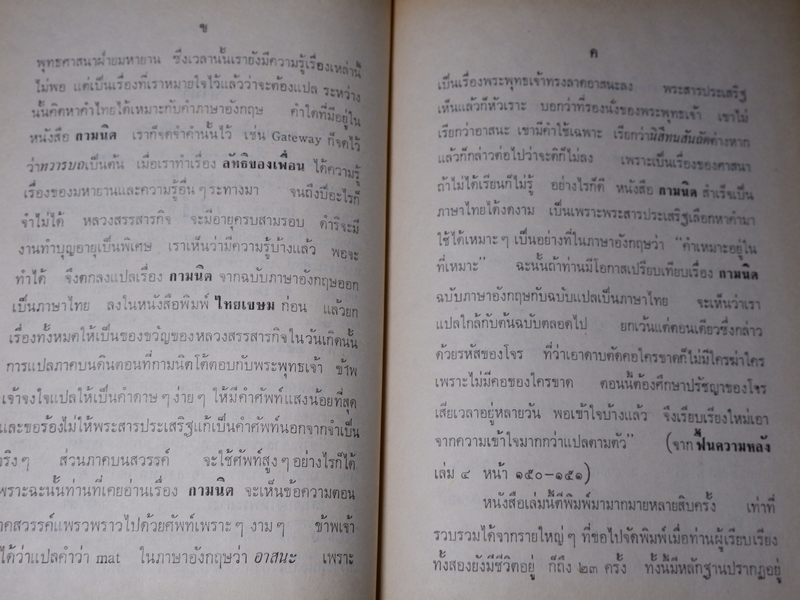 ข
พุทธศาสนาฝ่ายมหายาน ซึ่งเวลานั้นเรายังมีความรู้เรื่องเหล่านี้
ไม่พอ แต่เป็นเรื่องที่เราหมายใจไว้แล้วว่าจะต้องแปล ระหว่าง
นั้นคิดหาคำไทยได้เหมาะกับคำภาษาอังกฤษ คำใดที่มีอยู่ใน
หนังสือ กามนิต เราก็จดจำคำนั้นไว้ เช่น Gateway ก็จดไว้
ว่าทวารบถเป็นต้น เมื่อเราทำเรื่อง ลัทธิของเพื่อน ได้ความรู้
เรื่องของมหายานและความรู้อื่น ๆ ระทางมา จนถึงปีอะไรก็
จำไม่ได้ หลวงสรรสารกิจ จะมีอายุครบสามรอบ ดำริจะมี
งานทำบุญอายุเป็นพิเศษ เราเห็นว่ามีความรู้บ้างแล้ว พอจะ
ทำได้ จึงตกลงแปลเรื่อง กามนิต จากฉบับภาษาอังกฤษออก
เป็นภาษาไทย ลงในหนังสือพิมพ์ ไทยเขษม ก่อน แล้วยก
เรื่องทั้งหมดให้เป็นของขวัญของหลวงสรรสารกิจในวันเกิดนั้น
การแปลภาคบนดินตอนที่กามนิตโต้ตอบกับพระพุทธเจ้า ข้าพ
เจ้าจงใจแปลให้เป็นคำดาษ ๆ ง่าย ๆ ให้มีคำศัพท์แสงน้อยที่สุด
และขอร้องไม่ให้พระสารประเสริฐแก้เป็นคำศัพท์นอกจากจำเป็น
จริง ๆ ส่วนภาคบนสวรรค์ จะใช้ศัพท์สูง ๆ อย่างไรก็ได้
เพราะฉะนั้นท่านที่เคยอ่านเรื่อง กามนิต จะเห็นข้อความตอน
ภาคสวรรค์แพรวพราวไปด้วยศัพท์เพราะ ๆ งาม ๆ ข้าพเจ้า
ได้ว่าแปลคำว่า mat ในภาษาอังกฤษว่า อาสนะ เพราะ
ค
เป็นเรื่องพระพุทธเจ้าทรงลาดอาสนะลง พระสารประเสริฐ
เห็นแล้วก็หัวเราะ บอกว่าที่รองนั่งของพระพุทธเจ้า เขาไม่
เรียกว่าอาสนะ เขามีคำใช้เฉพาะ เรียกว่านิสีทนสันถัตต่างหาก
แล้วก็กล่าวต่อไปว่าจะดีก็ไม่ลง เพราะเป็นเรื่องของศาสนา
ถ้าไม่ได้เรียนก็ไม่รู้ อย่างไรก็ดี หนังสือ กามนิต สำเร็จเป็น
ภาษาไทยได้งดงาม เป็นเพราะพระสารประเสริฐเลือกหาคำมา
ใช้ได้เหมาะ ๆ เป็นอย่างที่ในภาษาอังกฤษว่า “คำเหมาะอยู่ใน
ที่เหมาะ” ฉะนั้นถ้าท่านมีโอกาสเปรียบเทียบเรื่อง กามนิต
ฉบับภาษาอังกฤษกับฉบับแปลเป็นภาษาไทย จะเห็นว่าเรา
แปลใกล้กับต้นฉบับตลอดไป ยกเว้นแต่ตอนเดียวซึ่งกล่าว
ด้วยรหัสของโจร ที่ว่าเอาดาบตัดคอใครขาดก็ไม่มีใครฆ่าใคร
เพราะไม่มีคอของใครขาด ตอนนี้ต้องศึกษาปรัชญาของโจร
เสียเวลาอยู่หลายวัน พอเข้าใจบ้างแล้ว จึงเรียบเรียงใหม่เอา
จากความเข้าใจมากกว่าแปลตามตัว” (จาก ฟื้นความหลัง
เล่ม ๔ หน้า ๑๕๐-๑๕๑)
หนังสือเล่มนี้ตีพิมพ์มามากมายหลายสิบครั้ง เท่าที่
รวบรวมได้จากรายใหญ่ ๆ ที่ขอไปจัดพิมพ์เมื่อท่านผู้เรียบเรียง
ทั้งสองยังมีชีวิตอยู่ ก็ถึง ๒๓ ครั้ง ทั้งนี้มีหลักฐานปรากฏอยู่